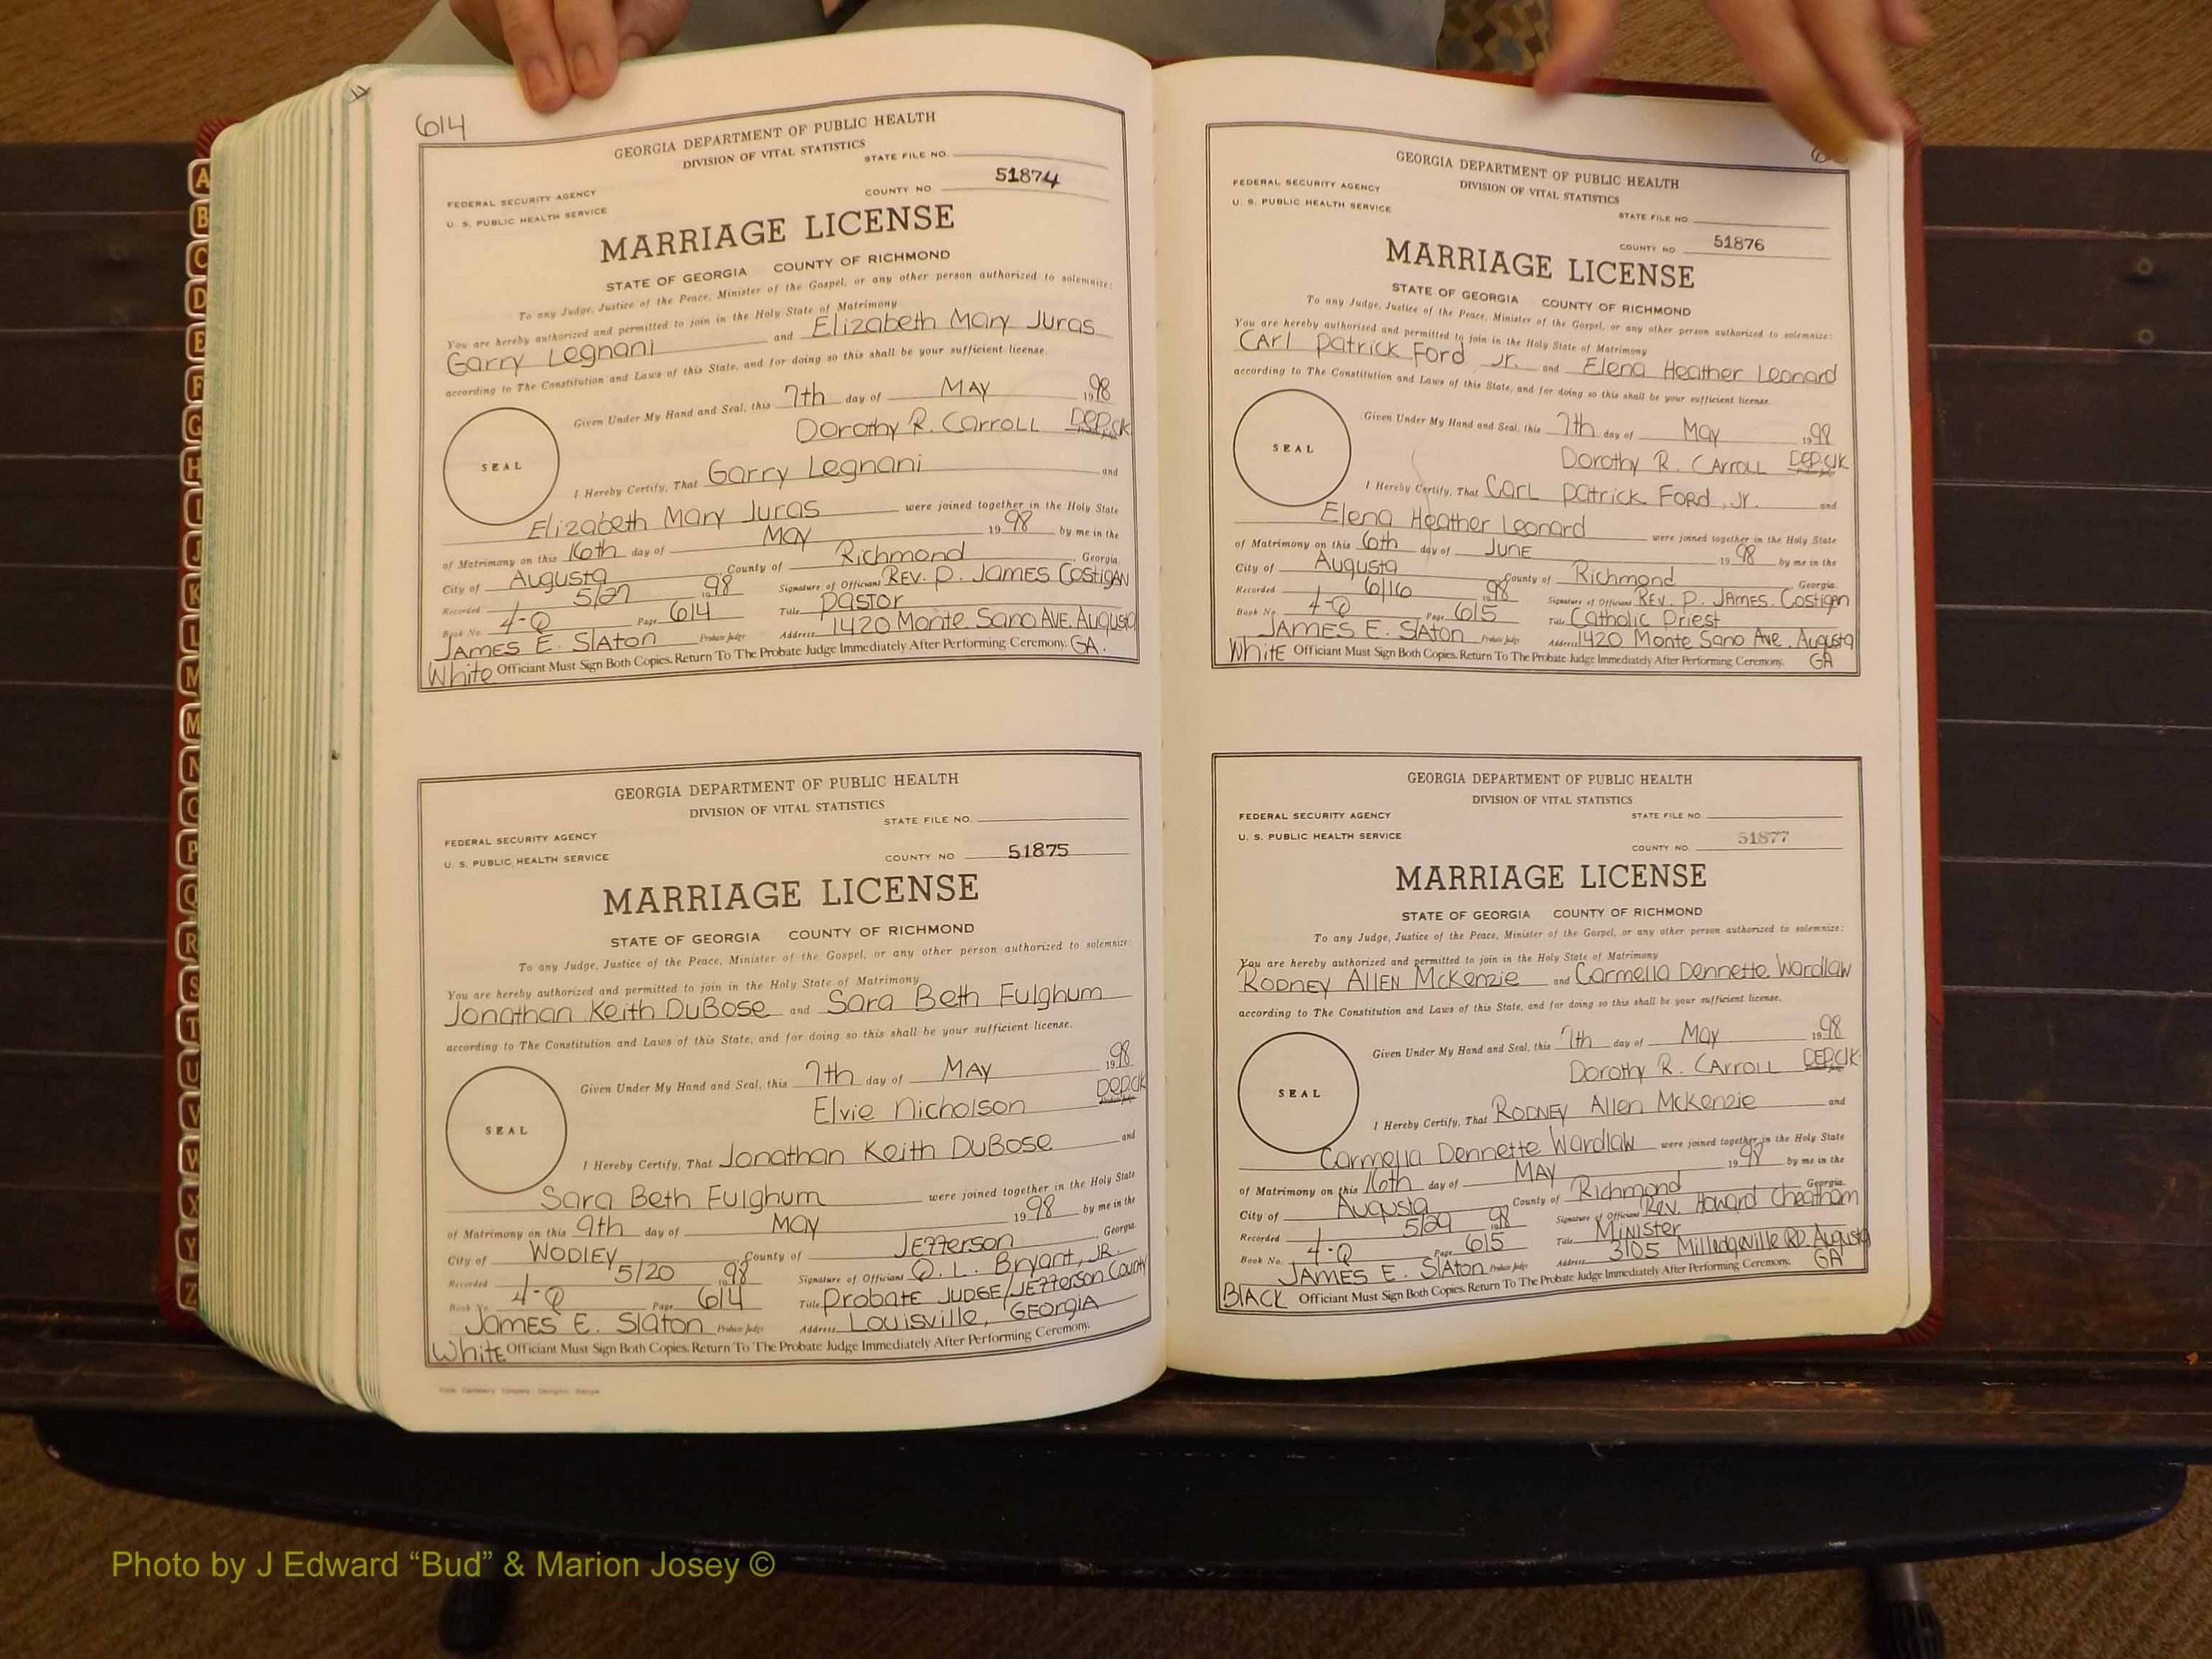 614
GEORGIA DEPARTMENT OF PUBLIC HEALTH
DIVISION OF VITAL STATISTICS
STATE FILE NO.
FEDERAL SECURITY AGENCY
COUNTY NO. 51874
U. S. PUBLIC HEALTH SERVICE
MARRIAGE LICENSE
STATE OF GEORGIA COUNTY OF RICHMOND
To any Judge, Justice of the Peace, Minister of the Gospel, or any other person authorized to solemnize:
You are hereby authorized and permitted to join in the Holy State of Matrimony
Garry Legnani and Elizabeth Mary Juras
according to The Constitution and Laws of this State, and for doing so this shall be your sufficient license.
Given Under My Hand and Seal, this 7th day of MAY 1998
Dorothy R. Carroll DEP.CK
SEAL
I Hereby Certify, That Garry Legnani and
Elizabeth Mary Juras were joined together in the Holy State
of Matrimony on this 16th day of MAY 1998 by me in the
City of Augusta County of Richmond, Georgia.
Recorded 5/27 1998 Signature of Officiant REV. P. JAMES COSTIGAN
Book No. 4-Q Page 614 Title PASTOR
JAMES E. SLATON Probate Judge Address 1420 Monte Sano AVE. Augusta
White Officiant Must Sign Both Copies. Return To The Probate Judge Immediately After Performing Ceremony. GA.
GEORGIA DEPARTMENT OF PUBLIC HEALTH
DIVISION OF VITAL STATISTICS
STATE FILE NO.
FEDERAL SECURITY AGENCY
U. S. PUBLIC HEALTH SERVICE
COUNTY NO 51875
MARRIAGE LICENSE
STATE OF GEORGIA COUNTY OF RICHMOND
To any Judge, Justice of the Peace, Minister of the Gospel, or any other person authorized to solemnize:
You are hereby authorized and permitted to join in the Holy State of Matrimony
Jonathan Keith DuBose and Sara Beth Fulghum
according to The Constitution and Laws of this State, and for doing so this shall be your sufficient license.
Given Under My Hand and Seal, this 7th day of MAY 1998
Elvie Nicholson DEP.CK
SEAL
I Hereby Certify, That Jonathan Keith DuBose and
Sara Beth Fulghum were joined together in the Holy State
of Matrimony on this 9th day of MAY 1998 by me in the
City of WODLEY County of JEFFERSON, Georgia.
Recorded 5/20 1998 Signature of Officiant Q. L. Bryant, JR.
Book No. 4-Q Page 614 Title PROBATE JUDGE/JEFFERSON County
JAMES E. Slaton Probate Judge Address Louisville, GEORGIA
White Officiant Must Sign Both Copies. Return To The Probate Judge Immediately After Performing Ceremony.
GEORGIA DEPARTMENT OF PUBLIC HEALTH
DIVISION OF VITAL STATISTICS
FEDERAL SECURITY AGENCY
U. S. PUBLIC HEALTH SERVICE
STATE FILE NO.
COUNTY NO 51876
MARRIAGE LICENSE
STATE OF GEORGIA COUNTY OF RICHMOND
To any Judge, Justice of the Peace, Minister of the Gospel, or any other person authorized to solemnize:
You are hereby authorized and permitted to join in the Holy State of Matrimony
Carl Patrick Ford, Jr. and Elena Heather Leonard
according to The Constitution and Laws of this State, and for doing so this shall be your sufficient license.
Given Under My Hand and Seal, this 7th day of May 1998
Dorothy R. Carroll DEP.CLK
SEAL
I Hereby Certify, That Carl Patrick Ford, Jr. and
Elena Heather Leonard were joined together in the Holy State
of Matrimony on this 6th day of JUNE 1998 by me in the
City of Augusta County of Richmond Georgia.
Recorded 6/16 1998 Signature of Officiant REV. P. JAMES. Costigan
Book No. 4-Q Page 615 Title Catholic Priest
JAMES E. SLATON Probate Judge Address 1420 Monte Sano Ave. Augusta
White Officiant Must Sign Both Copies. Return To The Probate Judge Immediately After Performing Ceremony. GA
GEORGIA DEPARTMENT OF PUBLIC HEALTH
DIVISION OF VITAL STATISTICS
FEDERAL SECURITY AGENCY
STATE FILE NO.
U. S. PUBLIC HEALTH SERVICE
COUNTY NO. 51877
MARRIAGE LICENSE
STATE OF GEORGIA COUNTY OF RICHMOND
To any Judge, Justice of the Peace, Minister of the Gospel, or any other person authorized to solemnize:
You are hereby authorized and permitted to join in the Holy State of Matrimony
RODNEY ALLEN McKenzie and Carmella Dennette Wardlaw
according to The Constitution and Laws of this State, and for doing so this shall be your sufficient license.
Given Under My Hand and Seal, this 7th day of May 1998
Dorothy R. Carroll DEP.CLK
SEAL
I Hereby Certify, That RODNEY Allen McKenzie and
Carmella Dennette Wardlaw were joined together in the Holy State
of Matrimony on this 16th day of MAY 1998 by me in the
City of Augusta County of Richmond Georgia.
Recorded 5/29 1998 Signature of Officiant Rev. Howard Cheatham
Book No. 4-Q Page 615 Title Minister
JAMES E. SLATON Probate Judge Address 3105 Milledgeville RD Augusta
BLACK Officiant Must Sign Both Copies. Return To The Probate Judge Immediately After Performing Ceremony. GA
A
B
C
D
E
F
G
H
I
J
K
L
M
M
N
O
P
Q
R
S
T
U
V
W
X
Y
Z
Photo by J Edward “Bud” & Marion Josey ©